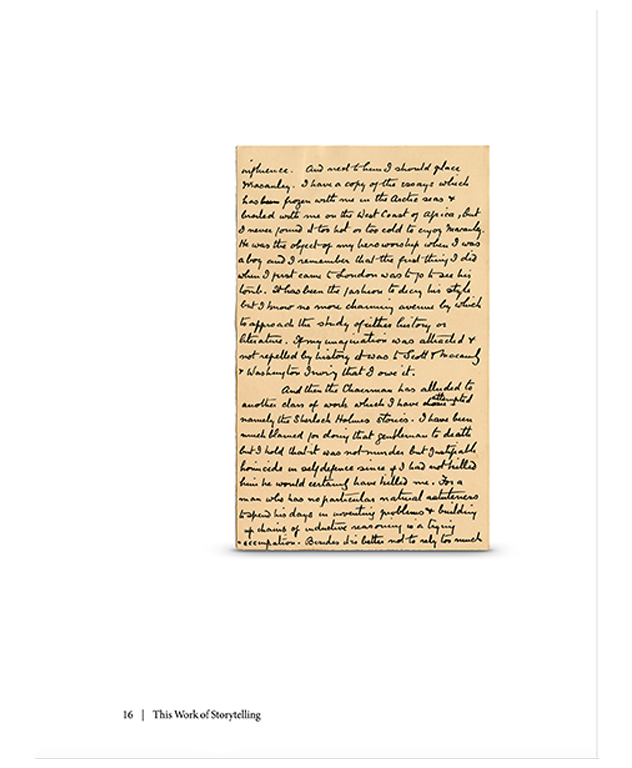 influence. And next to him I should place
Macaulay. I have a copy of the essays which
has been frozen with me in the Arctic seas &
broiled with me on the West Coast of Africa, but
I never found it too hot or too cold to enjoy Macaulay.
He was the object of my hero worship when I was
a boy and I remember that the first thing I did
when I first came to London was to go to see his
tomb. It has been the fashion to decry his style
but I know no more charming avenue by which
to approach the study of either history or
literature. If my imagination was attracted &
not repelled by history it was to Scott & Macaulay
& Washington Irving that I owe it.
And then the Chairman has alluded to
another class of work which I have attempted
namely the Sherlock Holmes stories. I have been
much blamed for doing that gentleman to death
but I hold that it was not murder but justifiable
homicide in self defence since if I had not killed
him he would certainly have killed me. For a
man who has no particular natural astuteness
to spend his days in inventing problems & building
up chains of inductive reasoning is a trying
occupation. Besides it is better not to rely too much
16 | This Work of Storytelling